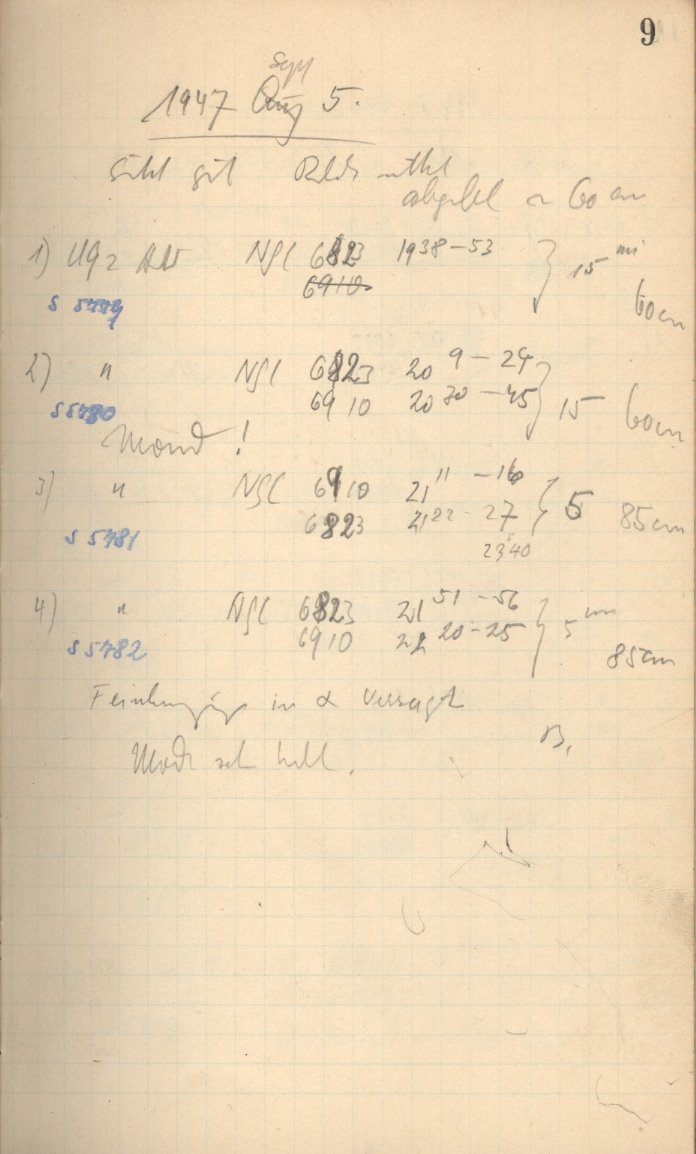 9
Sept
1947 Aug 5.
Sicht gut
abgebl 60 cm
1) UG2 NGC 6823 19 38-53 } 15 min
6910
S 5479 60 cm
2) " NGC 6823 20 9-24 }
6910 20 30-45 } 15 60 cm
S 5480
Mond!
3) " NGC 6910 21 11-16 }
6823 21 22-27 } 5 85 cm
S 5481
4) " NGC 6823 21 51-56 } 5 min
6910 22 20-25
S 5482 85 cm
Feinbewegung in α versagt
B.
Mond sehr hell.